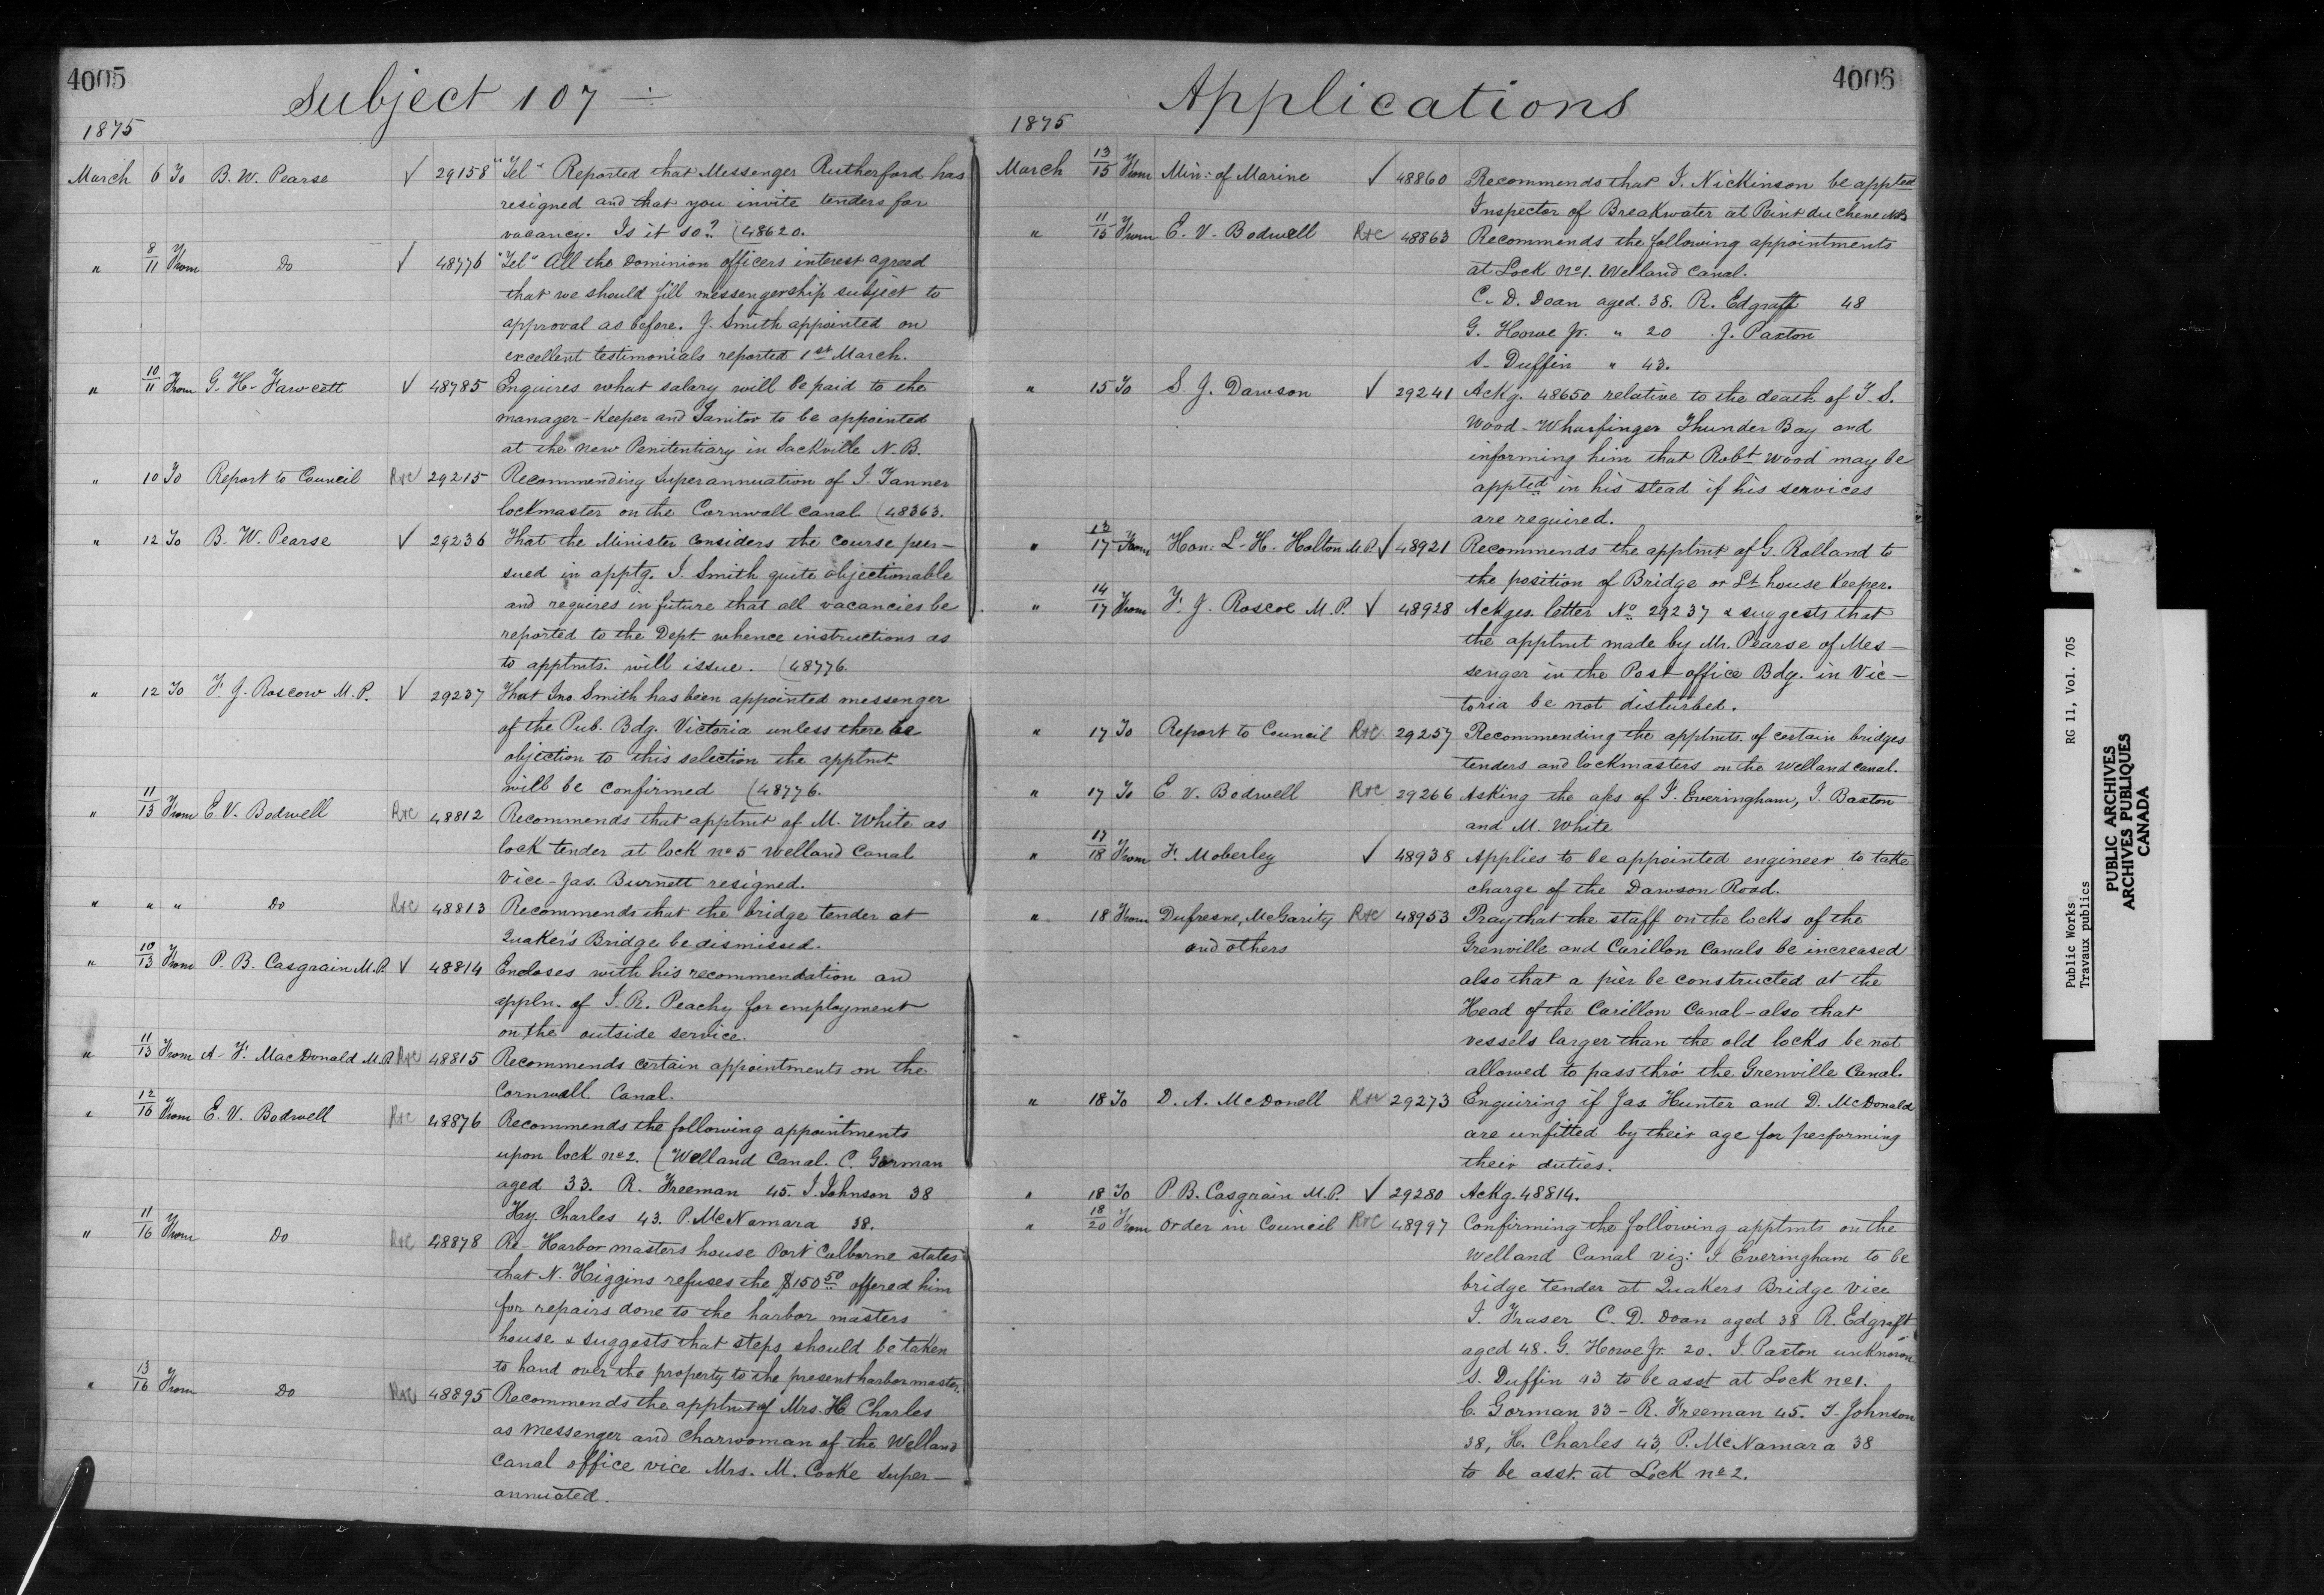 4005
Subject 107
1875
March 6 To B. W. Pearse √ 29158 "Tel" Reported that Messenger Rutherford has
resigned and that you invite tenders for
vacancy. Is it so? (48620.
" 8/11 From Do √ 48776 "Tel" All the Dominion officers interest agreed
that we should fill messengership subject to
approval as before. J. Smith appointed on
excellent testimonials reported 1st March.
" 10/11 From G. H. Fawcett √ 48785 Enquires what salary will be paid to the
manager-Keeper and Janitor to be appointed
at the new Penitentiary in Sackville N.B.
" 10 To Report to Council R+C 29215 Recommending Superannuation of J. Tanner
lockmaster on the Cornwall Canal (48363.
" 12 To B. W. Pearse √ 29236 That the Minister considers the course pur-
sued in apptg. J. Smith quite objectionable
and requires in future that all vacancies be
reported to the Dept. whence instructions as
to apptmts. will issue. (48776.
" 12 To F. J. Roscow M.P. √ 29237 That Jno Smith has been appointed messenger
of the Pub. Bdg. Victoria unless there be
objection to this selection the apptmt.
will be confirmed (48776.
" 11/13 From E. V. Bodwell R+C 48812 Recommends that apptmt of M. White as
lock tender at lock no 5 Welland Canal
Vice-Jas. Burnett resigned.
" " " Do R+C 48813 Recommends that the bridge tender at
Quaker's Bridge be dismissed.
" 10/13 From P. B. Casgrain M.P. √ 48814 Encloses with his recommendation an
appln. of J. R. Peachy for employment
on the outside service.
" 11/13 From A. F. MacDonald M.P. R+C 48815 Recommends certain appointments on the
Cornwall Canal.
" 12/16 From E. V. Bodwell R+C 48876 Recommends the following appointments
upon lock no 2. (Welland Canal. C. Gorman
aged 33. R. Freeman 45. J. Johnson 38
Hy. Charles 43. P. McNamara 38.
" 11/16 From Do R+C 48878 Re-Harbor masters house Port Colborne states
that N. Higgins refuses the $150 50 offered him
for repairs done to the harbor masters
house & suggests that steps should be taken
to hand over the property to the present harbor master.
" 13/16 From Do R+C 48895 Recommends the apptmt of Mrs. H. Charles
as Messenger and Charwoman of the Welland
Canal office vice Mrs. M. Cooke super-
annuated.
4006
Applications
1875
March 13/15 From Min: of Marine √ 48860 Recommends that J. Nickinson be appted
Inspector of Breakwater at Point du chene NB
" 11/15 From E. V. Bodwell R+C 48863 Recommends the following appointments
at Lock No 1. Welland Canal.
C. D. Doan aged. 38. R. Edgraft 48
G. Howe Jr. " 20 J. Paxton
S. Duffin " 43.
" 15 To S. J. Dawson √ 29241 Ackg. 48650 relative to the death of T. S.
Wood-Wharfinger Thunder Bay and
informing him that Robt Wood may be
appted in his stead if his services
are required.
" 13/17 From Hon: L. H. Holton M.P. √ 48921 Recommends the apptmt of G. Rolland to
the position of Bridge or Lt house Keeper.
" 14/17 From F. J. Roscoe M.P. √ 48928 Ackges. letter No 29237 & suggests that
the apptmt made by Mr. Pearse of Mes-
senger in the Post office Bdg. in Vic-
toria be not disturbed.
" 17 To Report to Council R+C 29257 Recommending the apptmts. of certain bridges
tenders and lockmasters on the Welland Canal.
" 17 To E. V. Bodwell R+C 29266 Asking the ages of J. Everingham, J. Baxton
and M. White
" 17/18 From F. Moberley √ 48938 Applies to be appointed engineer to take
charge of the Dawson Road.
" 18 From Dufresne, McGarity R+C 48953 Pray that the staff on the locks of the
and others Grenville and Carillon Canals be increased
also that a pier be constructed at the
Head of the Carillon Canal-also that
vessels larger than the old locks be not
allowed to pass thro' the Grenville Canal.
" 18 To D. A. McDonell R+C 29273 Enquiring if Jas Hunter and D. McDonald
are unfitted by their age for performing
their duties.
" 18 To P. B. Casgrain M.P. √ 29280 Ackg. 48814.
" 18/20 From Order in Council R+C 48997 Confirming the following apptmts on the
Welland Canal viz: J. Everingham to be
bridge tender at Quakers Bridge Vice
J. Fraser C. D. Doan aged 38 R. Edgraft
aged 48. G. Howe Jr. 20. J. Paxton unknown
S. Duffin 43 to be asst at Lock no 1.
C. Gorman 33 - R. Freeman 45. J. Johnson
38, H. Charles 43, P. McNamara 38
to be asst. at Lock no 2.
Public Works RG 11, Vol. 705
Travaux publics
PUBLIC ARCHIVES
ARCHIVES PUBLIQUES
CANADA